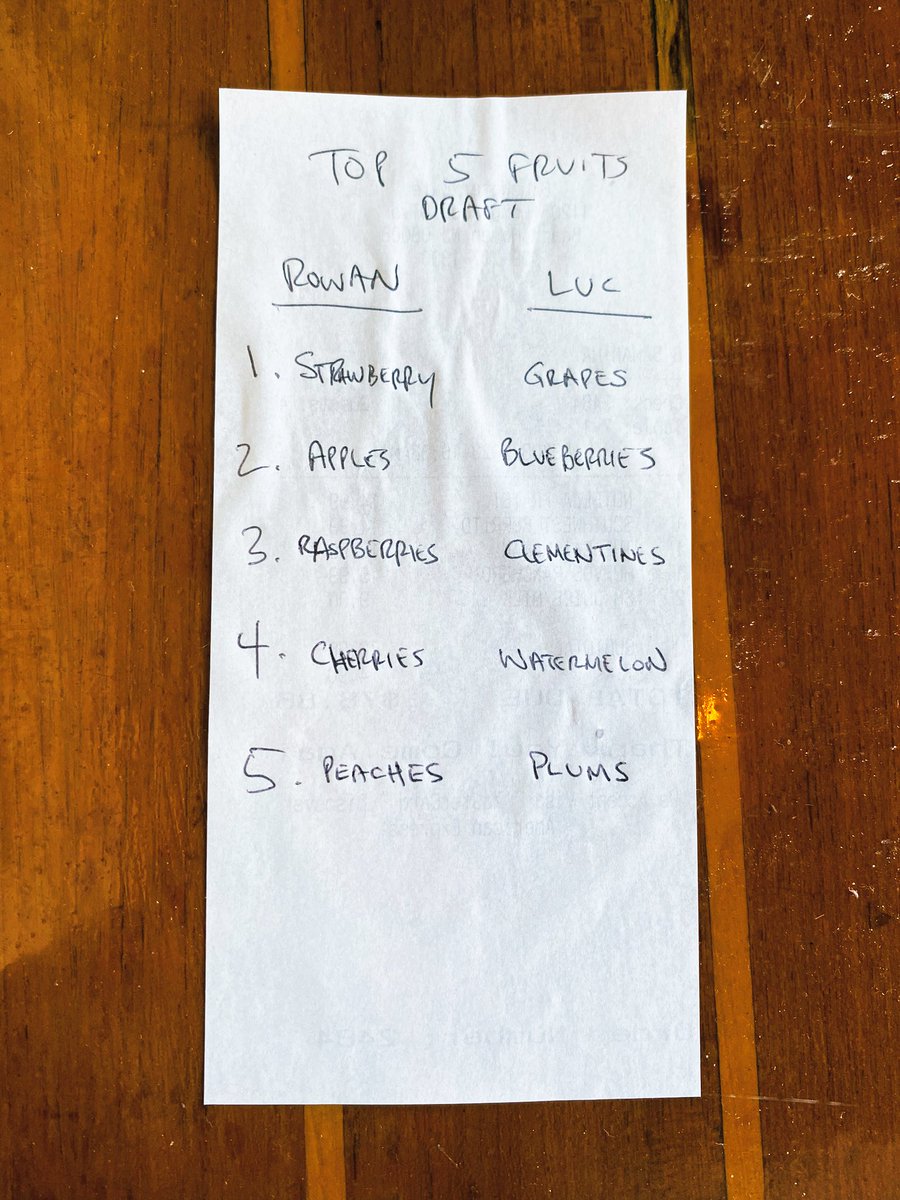 TOP 5 FRUITS
DRAFT
ROWAN LUC
1. STRAWBERRY GRAPES
2. APPLES BLUEBERRIES
3. RASPBERRIES CLEMENTINES
4. CHERRIES WATERMELON
5. PEACHES PLUMS